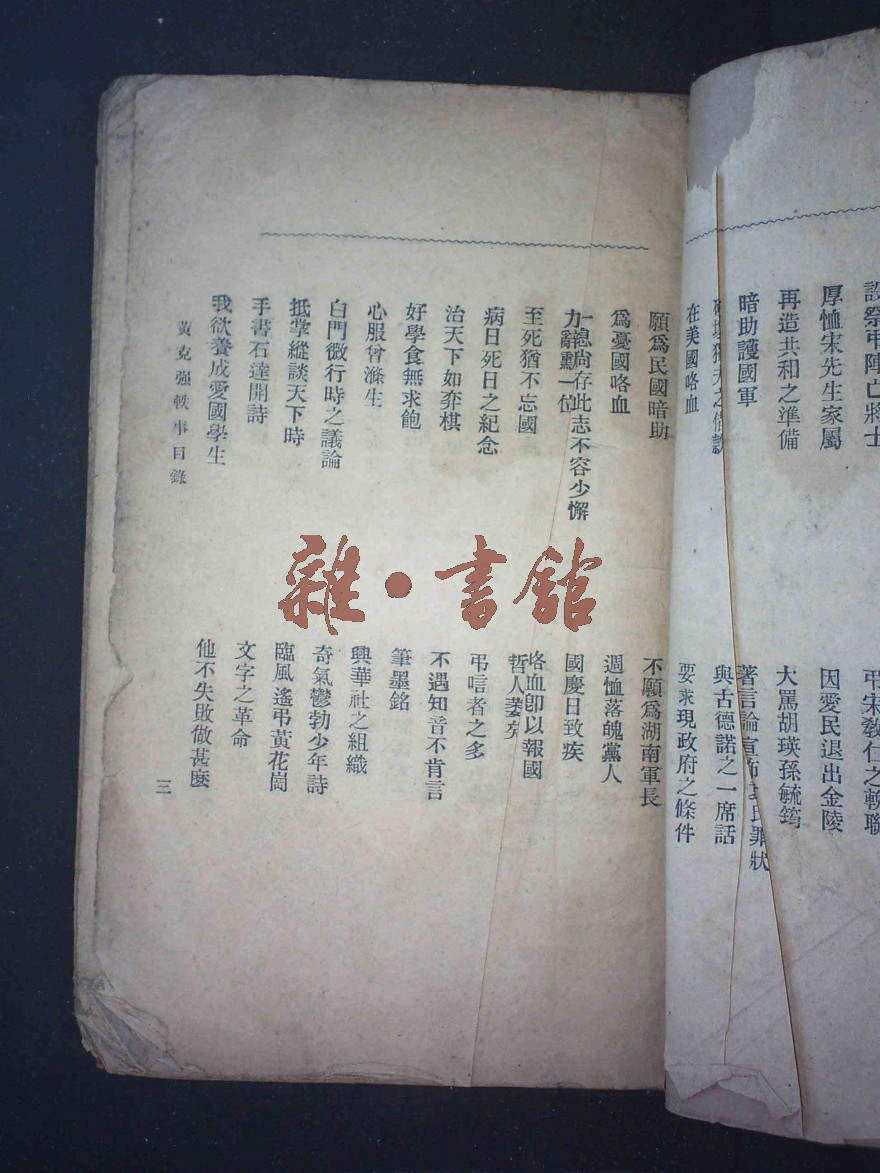 厚恤宋先生家屬
再造共和之準備
暗助護國軍
在美國咯血
因愛民退出金陵
大罵胡瑛孫毓筠
與古德諾之一席話
要求現政府之條件
願爲民國暗助
爲憂國咯血
一息尚存此志不容少懈
力辭勳一位
至死猶不忘國
病日死日之紀念
治天下如弈棋
好學食無求飽
心服曾滌生
白門微行時之議論
抵掌縱談天下時
手書石達開詩
我欲養成愛國學生
不願爲湖南軍長
週恤落魄黨人
國慶日致疾
咯血卽以報國
哲人萎矣
弔唁者之多
不遇知音不肯言
筆墨銘
興華社之組織
奇氣鬱勃少年詩
臨風遙弔黃花崗
文字之革命
他不失敗做甚麼
黃克强軼事目錄
三
雜·書館